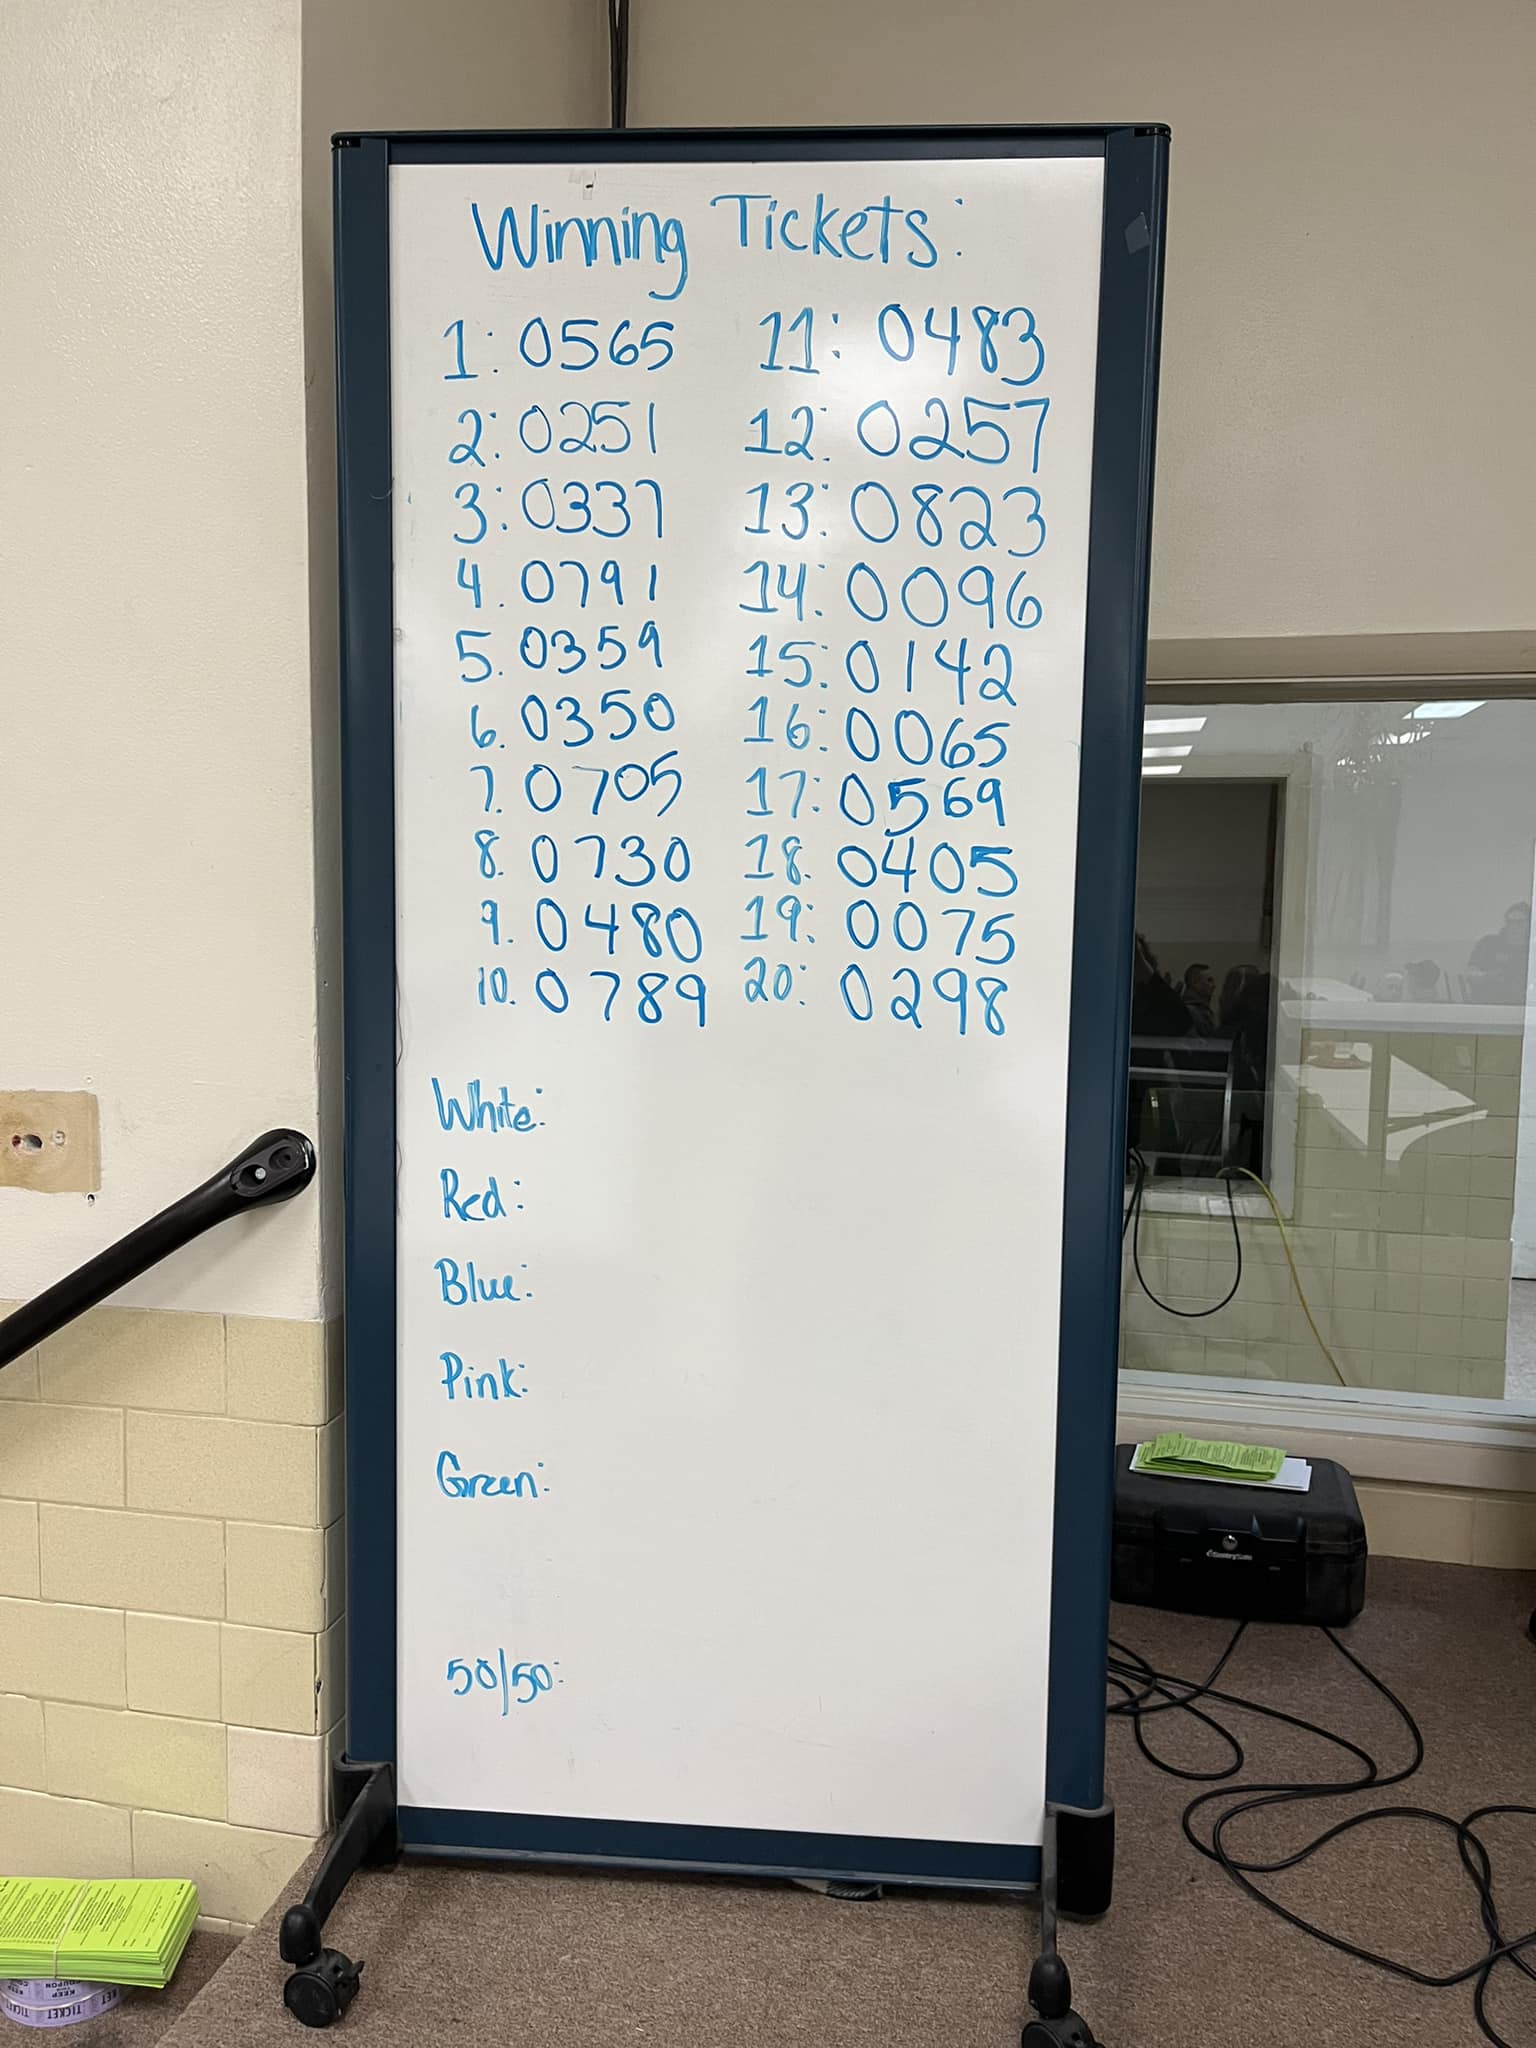 Winning Tickets:
1: 0565
2: 0251
3: 0337
4. 0791
5. 0359
6. 0350
7. 0705
8. 0730
9. 0480
10. 0789
11: 0483
12: 0257
13: 0823
14: 0096
15: 0142
16: 0065
17: 0569
18. 0405
19: 0075
20: 0298
White:
Red:
Blue:
Pink:
Green:
50/50:
TICKET
KEEP
COUPON